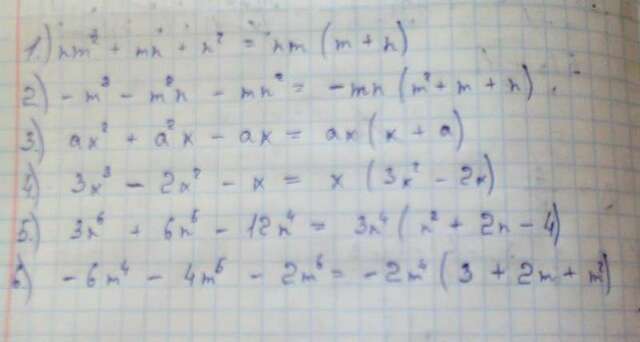 1.) nm² + mn + n² = nm (m + n)
2) - m³ - m²n - mn² = - mn (m² + m + n).
3) ax² + a²x - ax = ax (x + a)
4.) 3x³ - 2x² - x = x (3x² - 2x)
5.) 3n⁶ + 6n⁵ - 12n⁴ = 3n⁴ (n² + 2n - 4)
6) - 6m⁴ - 4m⁵ - 2m⁶ = - 2m⁴ (3 + 2m + m²)